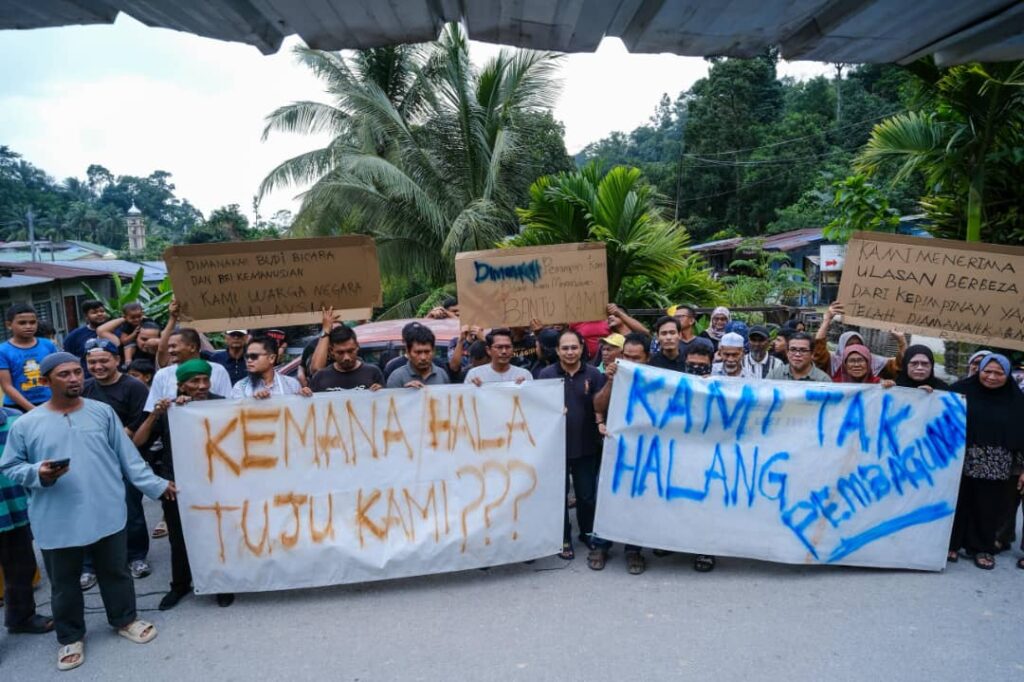 DIMANAKAH BUDI BICARA
DAN PRI KEMANUSIAN
KAMI WARGA NEGARA
DIMANAKAH Pemimpin Kami
BANTU KAMI
KAMI MENERIMA
ULASAN BERBEZA
DARI KEPIMPINAN YANG
TELAH DIAMANAHKAN
KEMANA HALA
TUJU KAMI ???
KAMI TAK
HALANG
PEMBAGUNAN